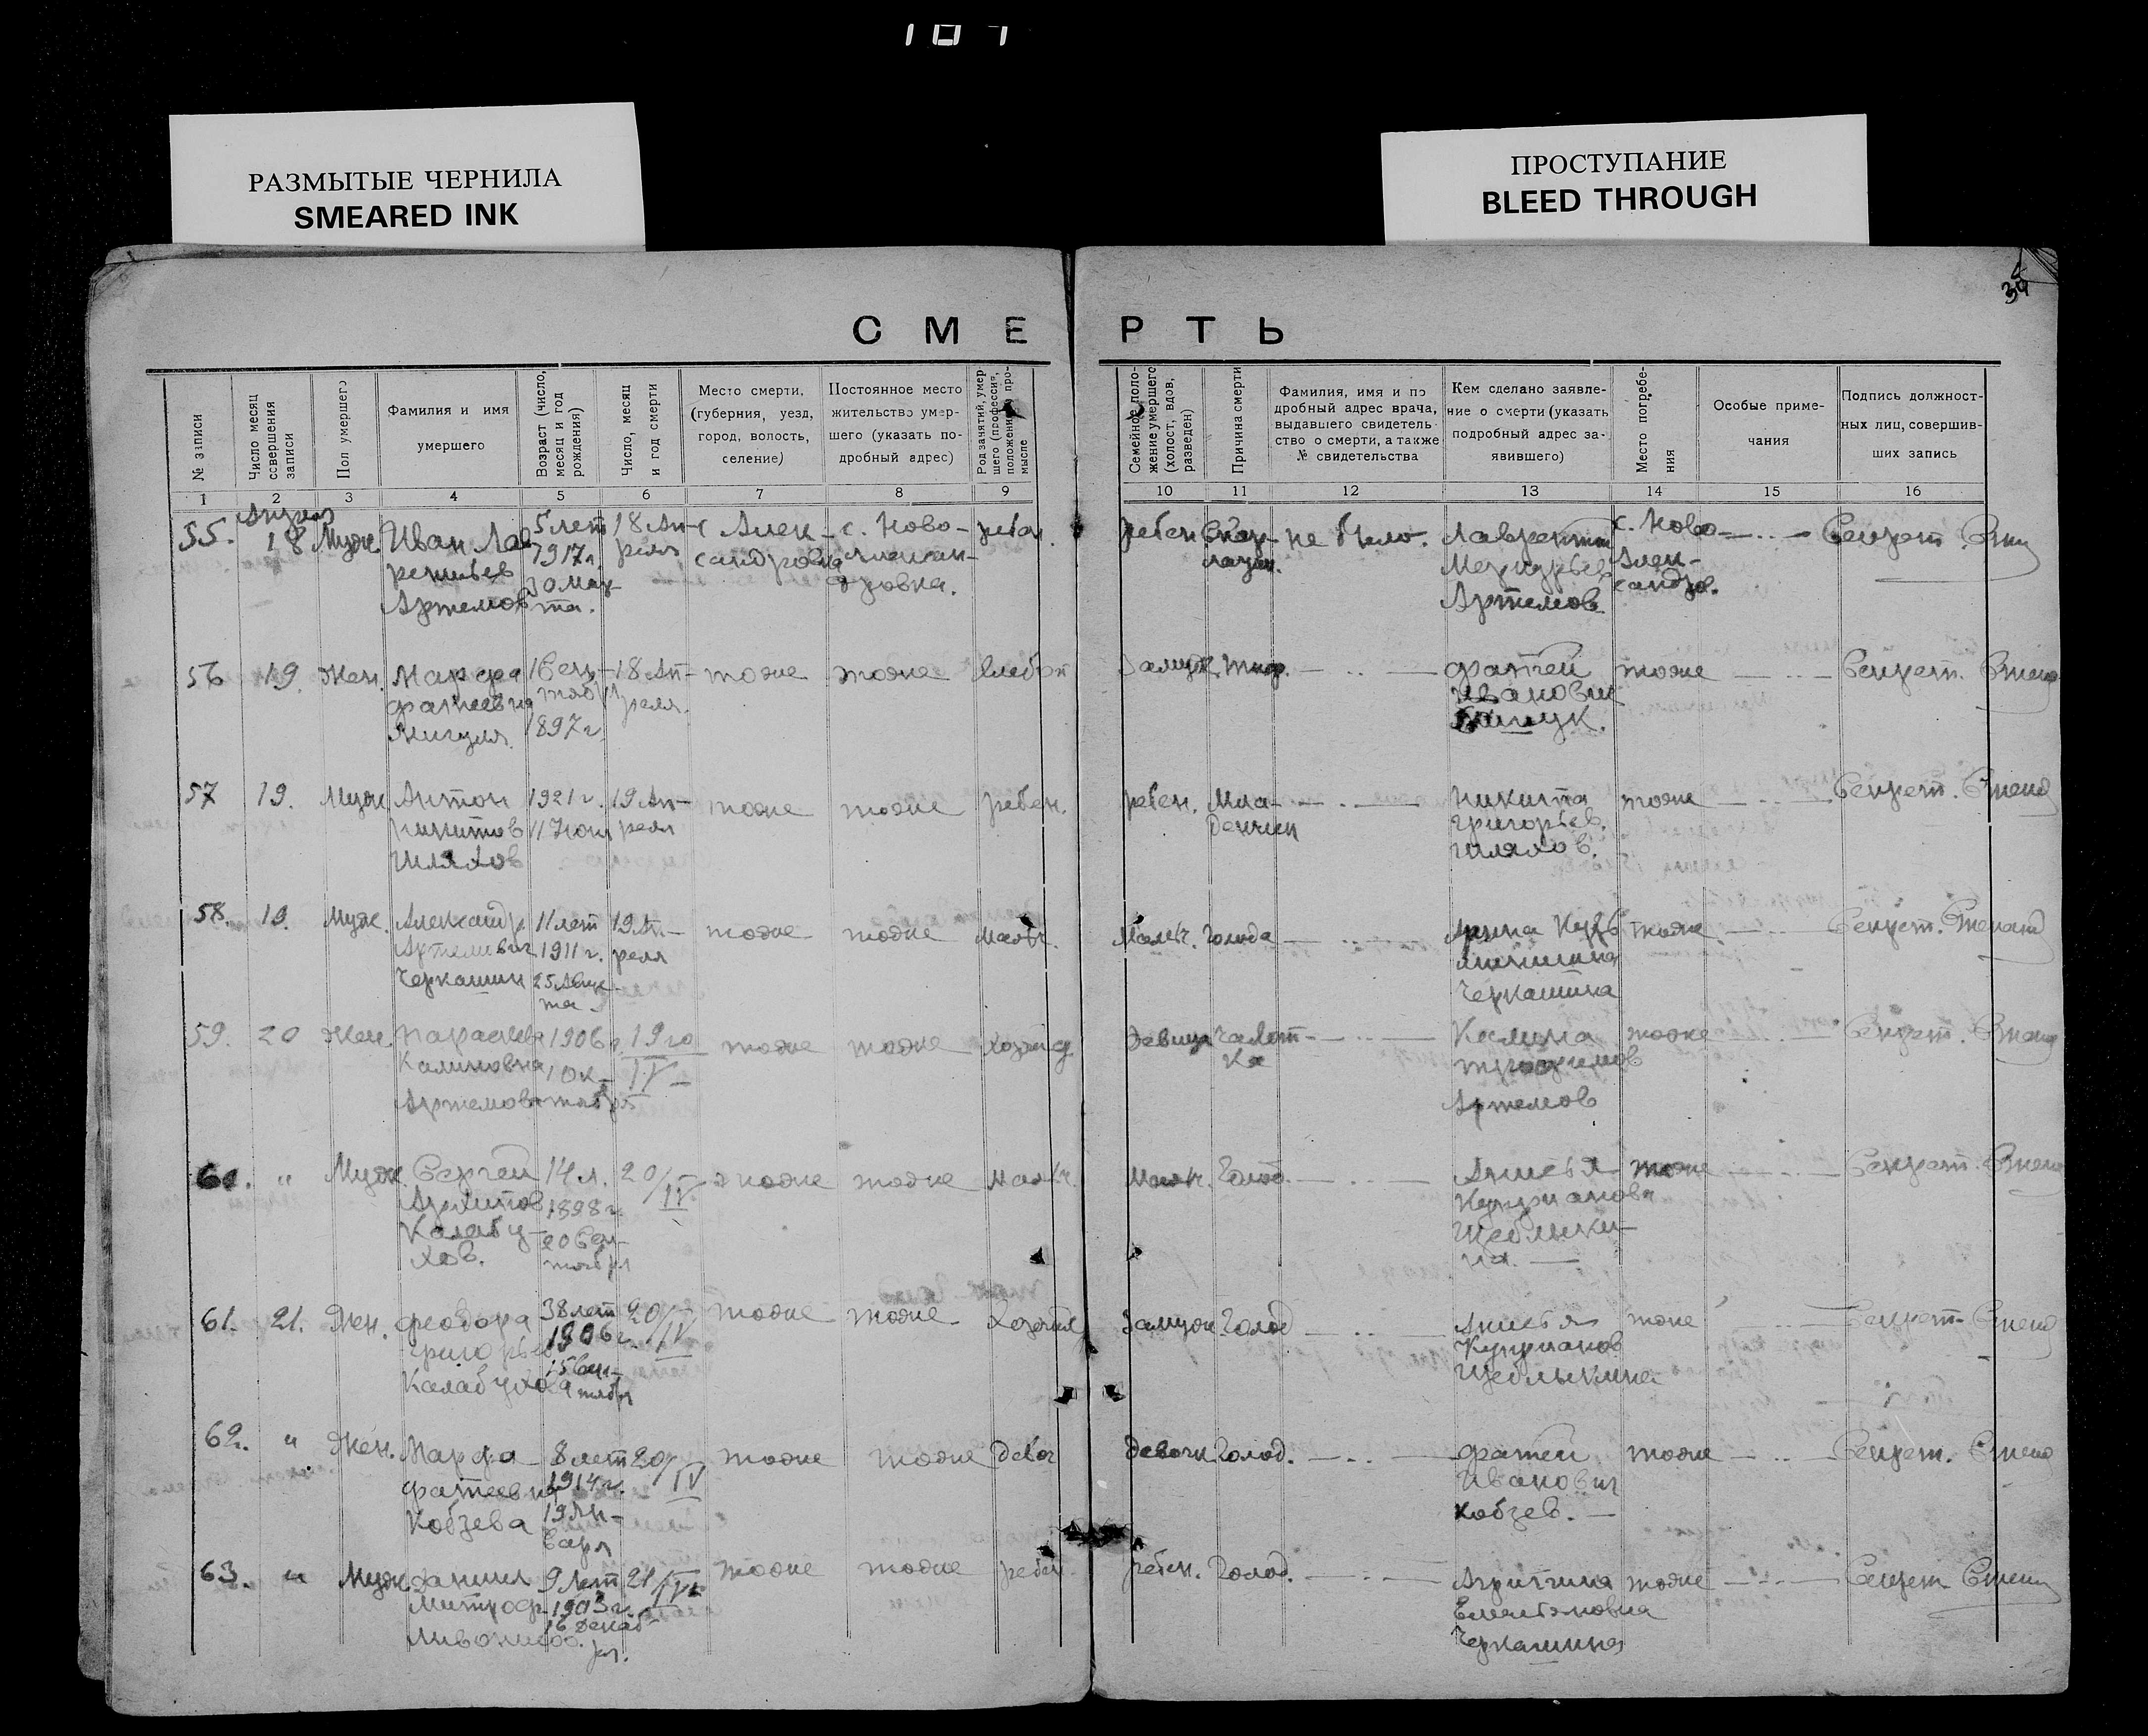 107
РАЗМЫТЫЕ ЧЕРНИЛА
SMEARED INK
ПРОСТУПАНИЕ
BLEED THROUGH
34
СМЕРТЬ
№ записи
Число месяц совершения записи
Пол умершего
Фамилия и имя умершего
Возраст (число, месяц и год рождения)
Число, месяц и год смерти
Место смерти, (губерния, уезд, город, волость, селение)
Постоянное место жительство умершего (указать подробный адрес)
Род занятий, умершего (профессия, положение в промысле
Семейное положение умершего (холост, вдов, разведен)
Причина смерти
Фамилия, имя и подробный адрес врача, выдавшего свидетельство о смерти, а также № свидетельства
Кем сделано заявление о смерти (указать подробный адрес заявившего)
Место погребения
Особые примечания
Подпись должностных лиц, совершивших запись
1 2 3 4 5 6 7 8 9 10 11 12 13 14 15 16
55. Апреля 18 Муж. Иван Лаврентьев Артемов 5 лет 1917 г. 30 марта. 18 Апреля с. Александровка с. Ново-Александровка. ребен. ребен. не было. Лаврентий Меркурьев Артемов с. Ново-Александров. Секрет.
56 19. Жен. Марфа Фатеевна 16 сентября 1897 г. 18 Апреля. тоже тоже Замуж. Тиф. Фатей Иванович тоже Секрет.
57 19. Муж. Антон Никитов Шляхов 1921 г. 11 Июня 19 Апреля тоже тоже ребен. ребен. Младенчик Никита Григорьев. Шляхов. тоже Секрет.
58. 19. Муж. Александр Артемович Черкашин 11 лет 1911 г. 25 Августа 19 Апреля тоже тоже Мальч. Мальч. голода Черкашина тоже Секрет.
59. 20 Жен. Параскева Калиновна Артемова 1906 г. 1 Октября 19го IV тоже тоже Девица Чахотка Калина Трофимов Артемов тоже Секрет.
60. " Муж. Сергей Архипов Калабухов. 14 л. 1898 г. 20 Сентября 20/IV тоже тоже Мальч. Мальч. Голод. Анисья Куприянова Щеблыкина. тоже Секрет.
61. 21. Жен. Феодора Григорьев Калабухова 38 лет 1806 г. 15 Сентября 20/IV тоже тоже Замужн Голод Анисья Куприянов Щеблыкина тоже Секрет.
62. " Жен. Марфа Фатеевна Кобзева 8 лет 1914 г. 19 Января 20/IV тоже тоже Девоч девочк Голод. Фатей Иванович Кобзев. тоже Секрет.
63. " Муж. Даниил Митроф. 9 лет 1903 г. 16 Декабря. 21/IV тоже тоже ребен. ребен. Голод. Агриппина Емельяновна Черкашина тоже Секрет.